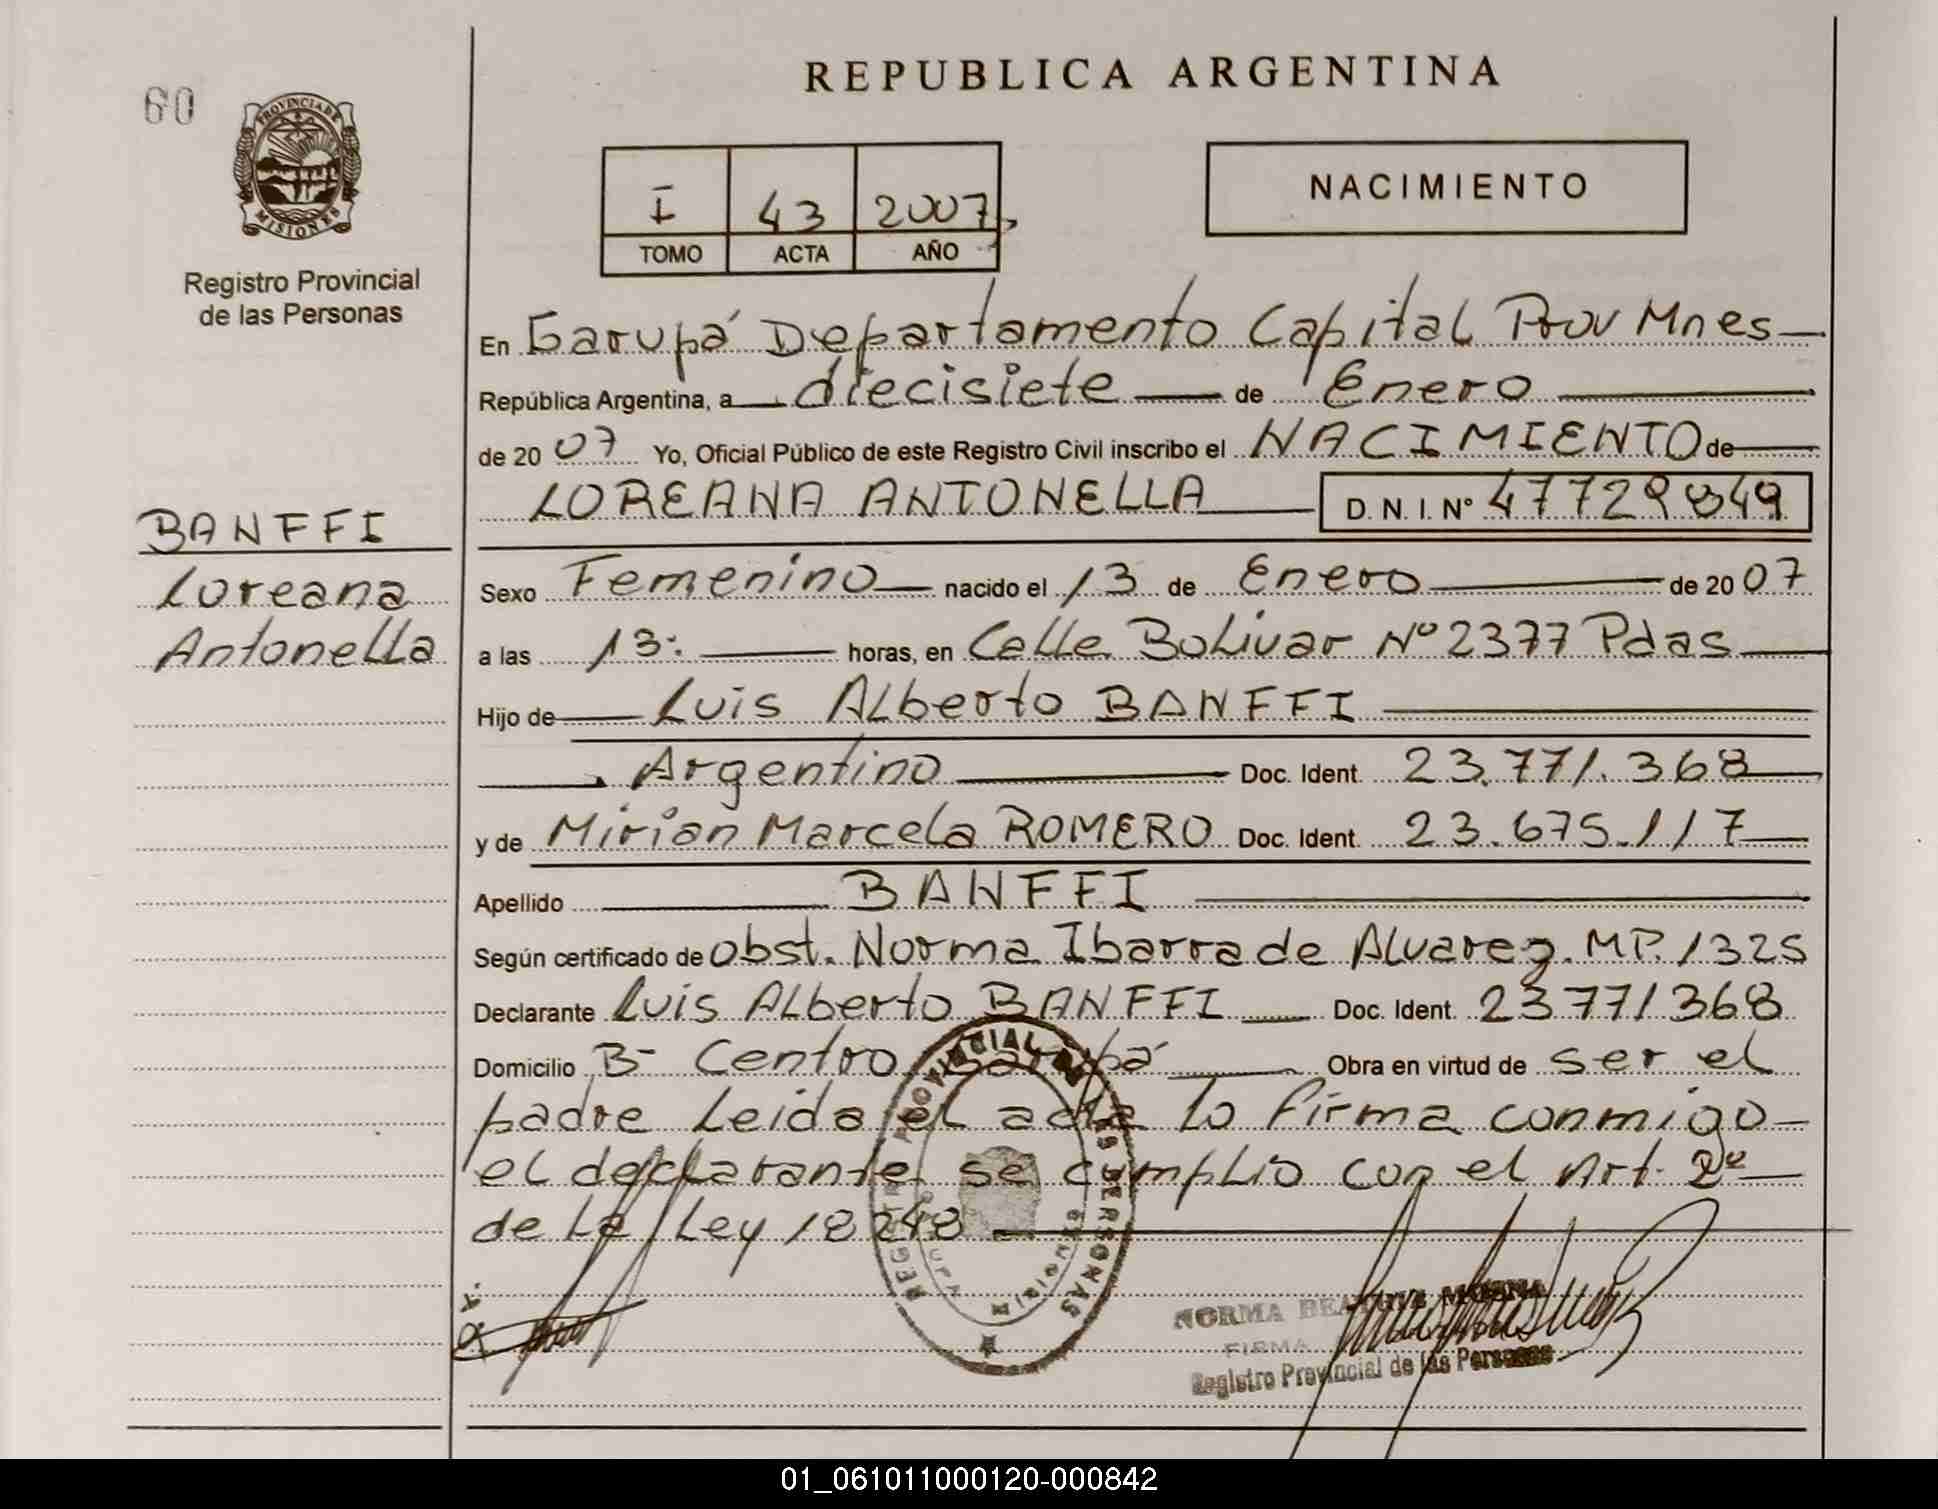 REPUBLICA ARGENTINA
60
PROVINCIA DE
MISIONES
Registro Provincial
de las Personas
I 43 2007
TOMO ACTA AÑO
NACIMIENTO
En Garupá Departamento Capital Prov Mnes
República Argentina, a diecisiete de Enero
de 2007 Yo, Oficial Público de este Registro Civil inscribo el NACIMIENTO de
LOREANA ANTONELLA D. N. I. Nº 47729849
BANFFI
Loreana
Antonella
Sexo Femenino nacido el 13 de Enero de 2007
a las 13: horas, en Calle Bolivar Nº 2377 Pdas
Hijo de Luis Alberto BANFFI
Argentino Doc. Ident. 23.771.368
y de Mirian Marcela ROMERO Doc. Ident. 23.675.117
Apellido BANFFI
Según certificado de obst. Norma Ibarra de Alvarez. MP. 1325
Declarante Luis Alberto BANFFI Doc. Ident. 23771368
Domicilio Bº Centro Garupá Obra en virtud de ser el
padre Leida el acta lo firma conmigo
el declarante se cumplio con el Art. 2º
de la Ley 18248
REGISTRO PROVINCIAL DE LAS PERSONAS
NORMA BEATRIZ
FIRMA
Registro Provincial de las Personas
01_061011000120-000842